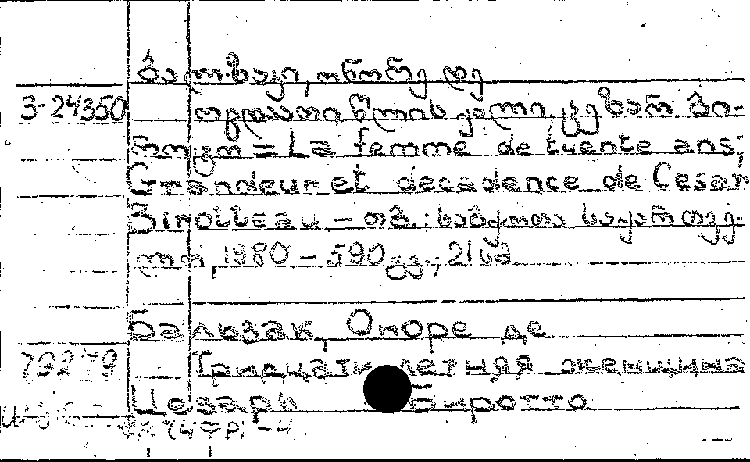 ბალზაკი, ონორე დე
3-24350 ოცდაათი წლის ქალი. ცეზარ ბი-
როტო = La femme de tuente ans;
Grandeur et decadence de Cesar
Birotteau – თბ.: საბჭოთა საქართვე-
ლო, 1980 – 590 გვ.; 21 სმ
Бальзак, Оноре де
79279 Тридцати летняя женщина
Цезарь Биротто